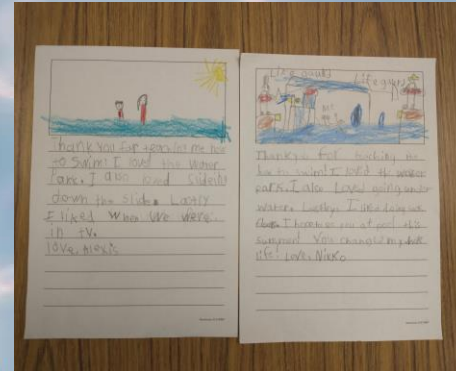 Thank you for teaching me how
to swim! I love the water
Park. I also loved sliding
down the slide. Lastly
I liked when we were
in tv.
love, Alexis
Life guard Life guard
Thank you for teaching me
how to swim! I loved the water
park. I also Loved going under
water. Lastly, I
I hope to see you at pool this
summer! You changed my
life! Love, Nikko